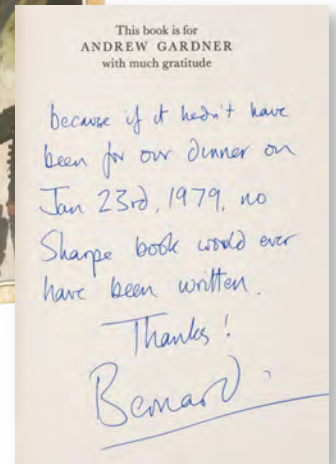 This book is for
ANDREW GARDNER
with much gratitude
because if it hadn't have
been for our dinner on
Jan 23rd, 1979, no
Sharpe book would ever
have been written.
Thanks!
Bernard.